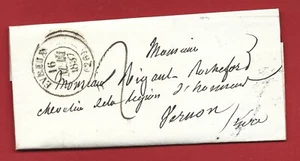 EVREUX
16
(26)
2
Monsieur
Monsieur Rigault Rochefort
chevalier de la légion d'honneur
Vernon
Eure